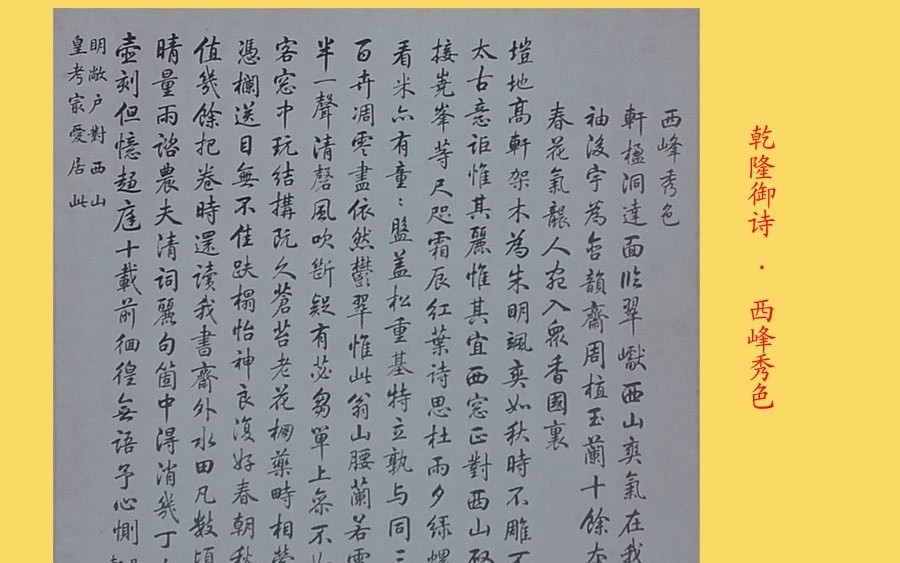 乾隆御诗 · 西峰秀色
西峰秀色
軒楹洞達面臨翠巘西山爽氣在我
袖後宇為含韻齋周植玉蘭十餘本
春花氣襲人宛入眾香國裏
塏地高軒架木為朱明颯爽如秋時不雕不
太古意詎惟其麗惟其宜西窓正對西山啓
接嶤峯等尺咫霜辰紅葉詩思杜雨夕綠螺
看米亦有童〻盤盖松重基特立孰与同三
百卉凋零盡依然鬱翠惟此翁山腰蘭若雲
半一聲清磬風吹斷疑有苾芻單上參不
客窓中玩結搆既久蒼苔老花欄藥畤相縈
憑欄送目無不佳趺榻怡神良復好春朝秋
值幾餘把卷時還讀我書齋外水田凡數頃
晴量雨諮農夫清詞麗句箇中得消幾丁
壺刻但憶趨庭十載前徊徨無語予心惻
明敞户對西山
皇考冣愛居此